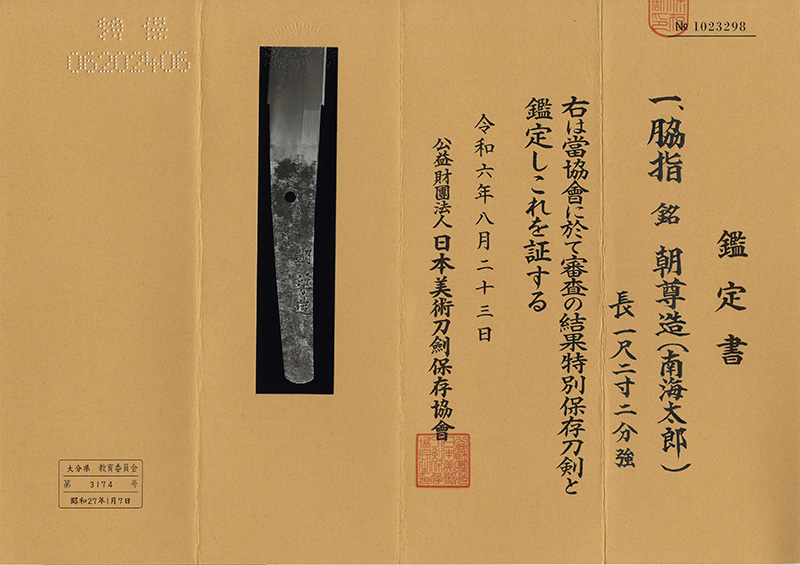 № 1023298
鑑定書
一、脇指 銘 朝尊造(南海太郎)
長一尺二寸二分強
右は當協會に於て審査の結果特別保存刀剣と
鑑定しこれを証する
令和六年八月二十三日
公益財團法人日本美術刀劍保存協會
朝尊造
特保
06202406
大分県 教育委員会
第 3174 号
昭和27年1月7日